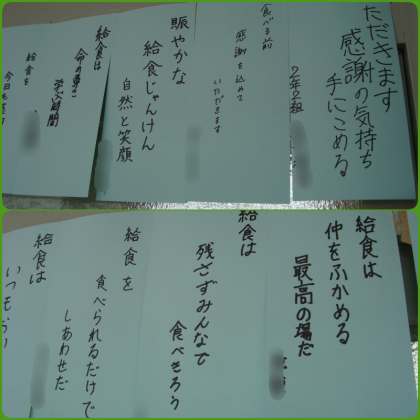 ただきます
感謝の気持ち
手にこめる
2年2組
食べる前
感謝を込めて
いただきます
賑やかな
給食じゃんけん
自然と笑顔
給食は
命の尊さ
学ぶ時間
給食を
今日も
給食は
仲をふかめる
最高の場だ
給食は
残さずみんなで
食べきろう
給食を
食べられるだけで
しあわせだ
給食は
いつも